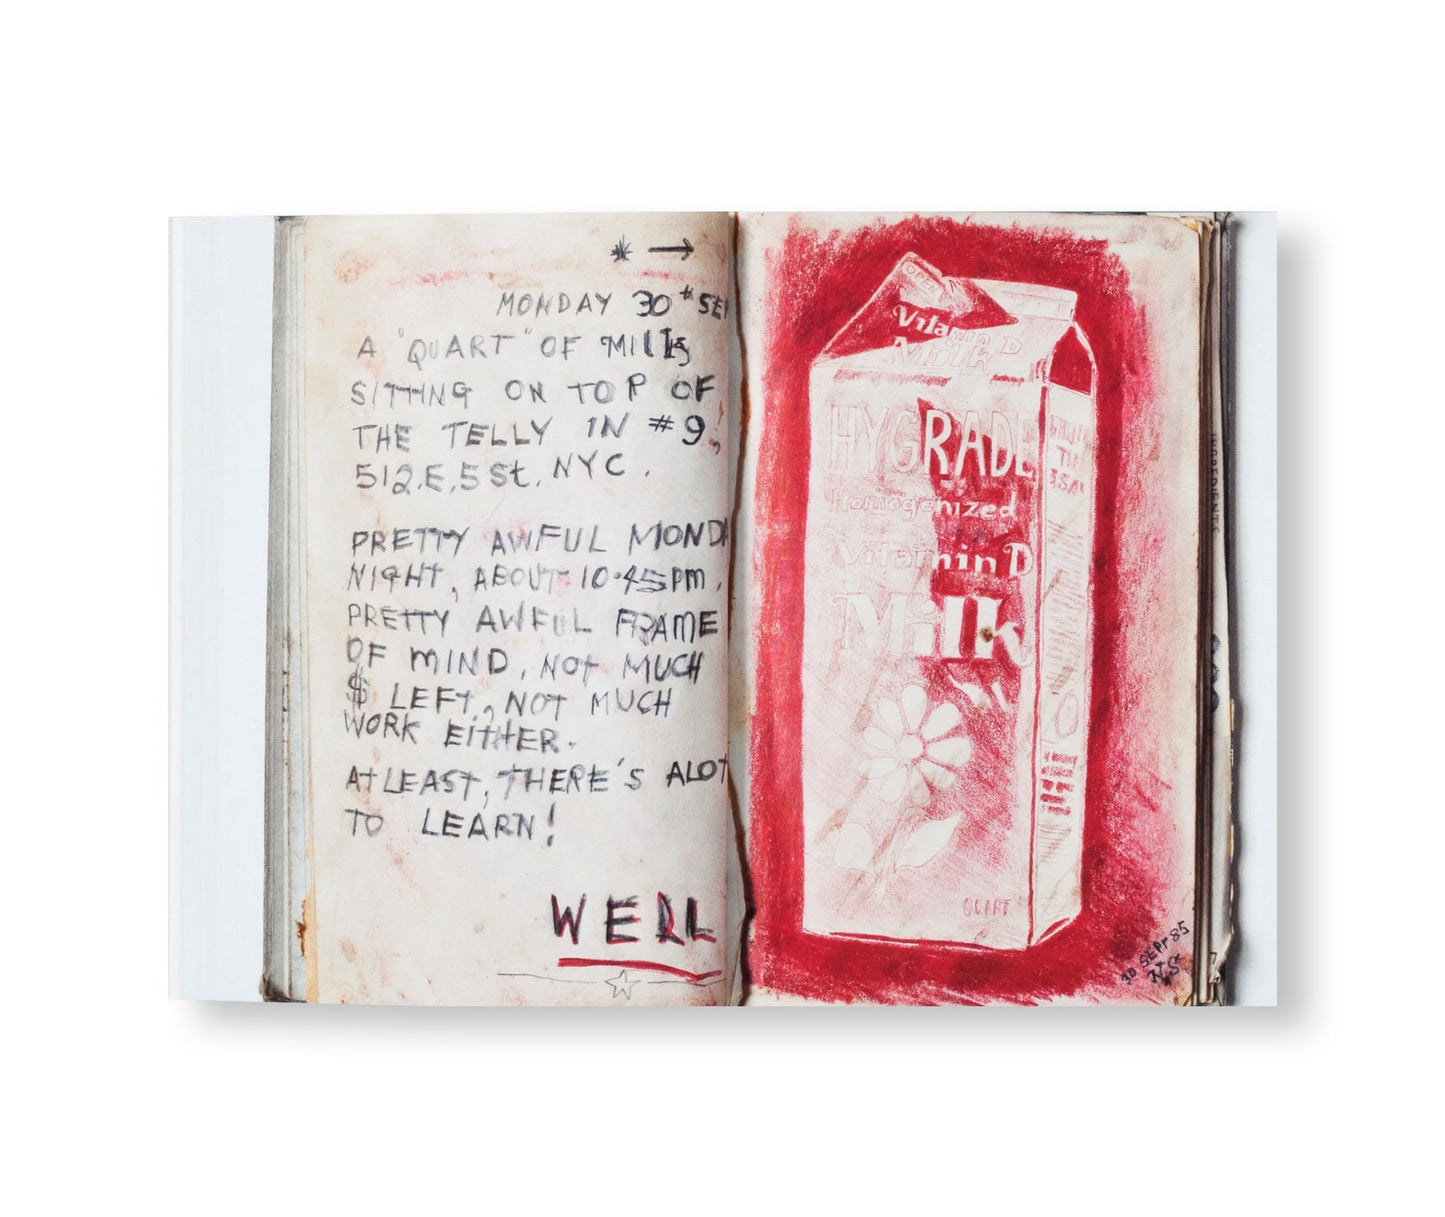 MONDAY 30th SE
A "QUART" OF MILK
SITTING ON TOP OF
THE TELLY IN #9,
512.E.5St. NYC.
PRETTY AWFUL MONDA
NIGHT, ABOUT 10.45pm.
PRETTY AWFUL FRAME
OF MIND, NOt MUCH
$ LEFT, NOT MUCH
WORK EITHER.
AtLEAST, THERE'S ALOT
TO LEARN!
WELL
OPEN
Vitamin D
Milk
HYGRADE
Homogenized
Vitamin D
Milk
QUART
INGREDIENTS
30 SEPT 85